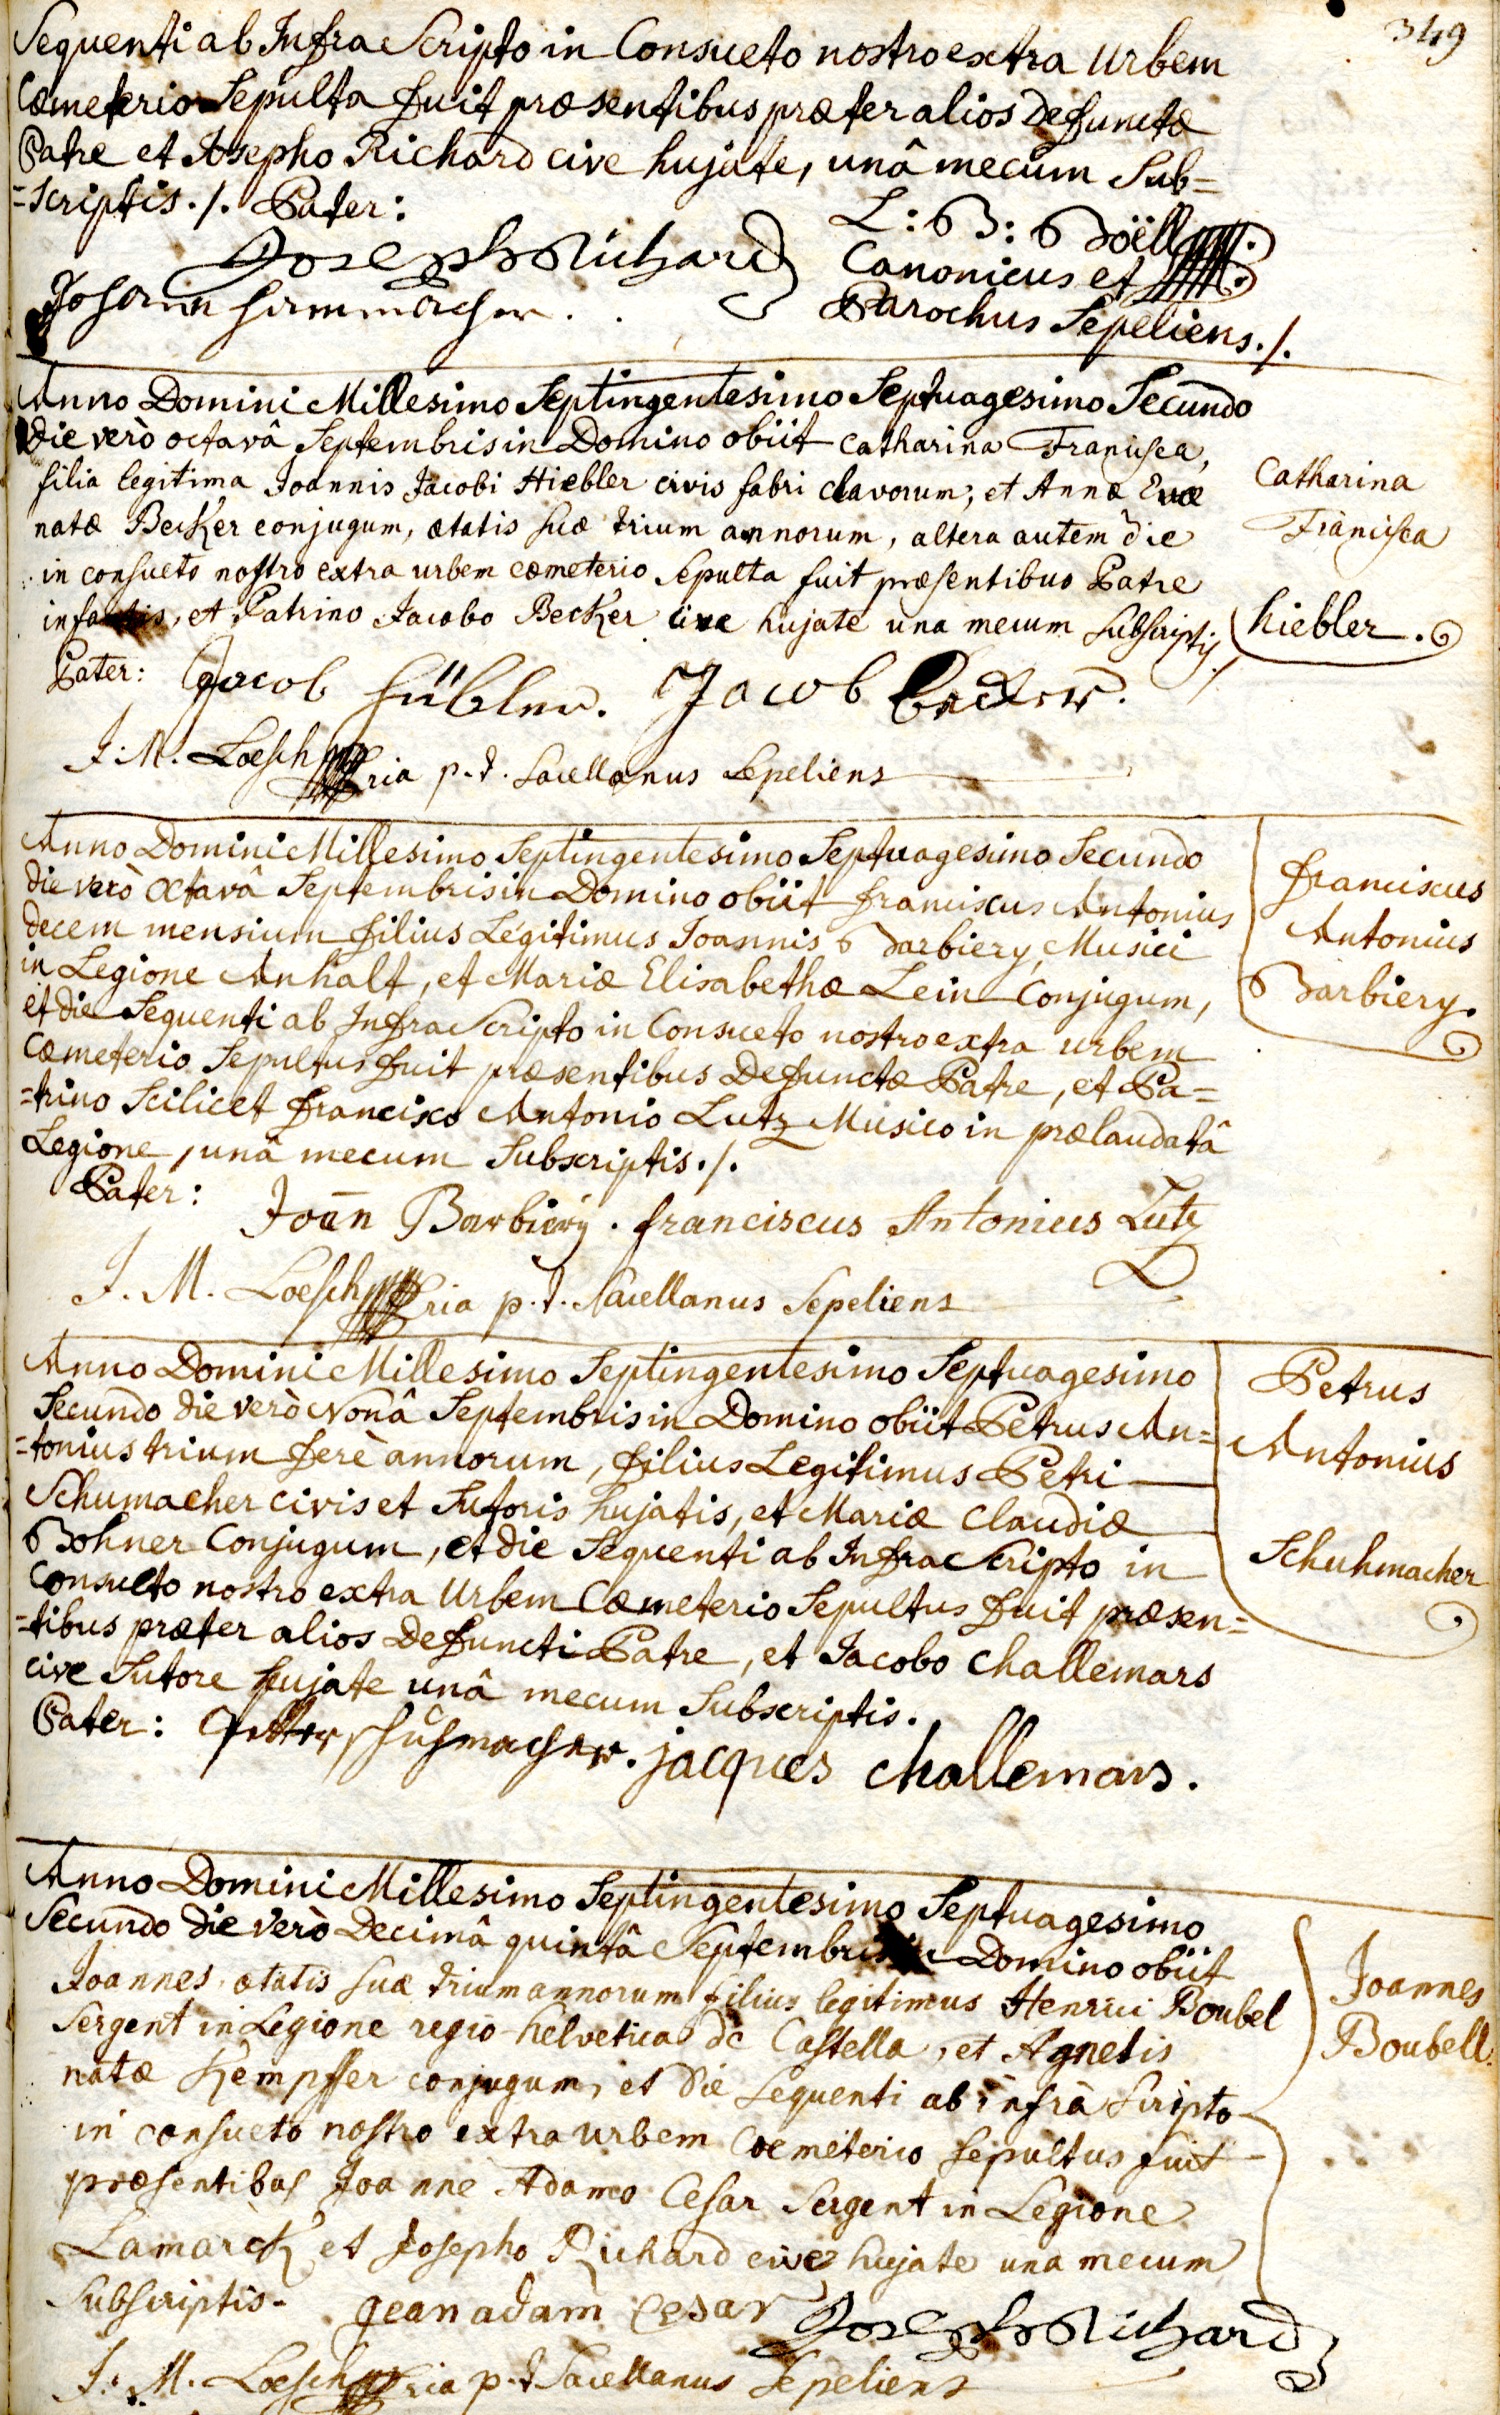 349
Sequenti ab Infra Scripto in Consueto nostro extra Urbem
Cœmeterio Sepulta fuit præsentibus præter alios defunctæ
Patre et Josepho Richard cive hujate, unâ mecum Sub=
=scriptis ./. Pater:
L: B: Böell
Joseph Richard
Canonicus et
Johann
Parochus Sepeliens ./.
Anno Domini Millesimo Septingentesimo Septuagesimo Secundo
die verò octavâ Septembris in Domino obiit Catharina Francisca,
filia legitima Joannis Jacobi Hiebler civis fabri clavorum, et Annæ Evæ
natæ Becker conjugum, ætatis suæ trium annorum, altera autem die
in consueto nostro extra urbem cœmeterio sepulta fuit præsentibus Patre
infantis, et Patrino Jacobo Becker cive hujate una mecum subscriptis ./.
Catharina
Francisca
hiebler.
Pater: Jacob Hübler. Jacob Becker.
J. M. Loesch p. t. Sacellanus Sepeliens
Anno Domini Millesimo Septingentesimo Septuagesimo Secundo
die verò octavâ Septembris in Domino obiit franciscus Antonius
decem mensium filius Legitimus Joannis Barbiery, Musici
in Legione Anhalt, et Mariæ Elisabethæ Lein Conjugum,
et die Sequenti ab Infra Scripto in Consueto nostro extra urbem
Cœmeterio Sepultus fuit præsentibus Defunctæ Patre, et Pa=
=trino Scilicet francisco Antonio Lutz Musico in prælaudatâ
Legione, unâ mecum Subscriptis ./.
franciscus
Antonius
Barbiery.
Pater: Joan̄ Barbiery. franciscus Antonius Lutz
J. M. Loesch p. t. Sacellanus Sepeliens
Anno Domini Millesimo Septingentesimo Septuagesimo
Secundo die verò Nonâ Septembris in Domino obiit Petrus An=
=tonius trium ferè annorum, filius Legitimus Petri
Schumacher civis et Sutoris hujatis, et Mariæ Claudiæ
Bohner Conjugum, et die Sequenti ab Infra Scripto in
Consueto nostro extra Urbem Cœmeterio Sepultus fuit præsen=
=tibus præter alios Defuncti Patre, et Jacobo Challemars
cive Sutore hujate unâ mecum Subscriptis.
Petrus
Antonius
Schuhmacher
Pater: Petter schuhmacher. jacques challemars.
Anno Domini Millesimo Septingentesimo Septuagesimo
Secundo die verò Decimâ quintâ Septembris in Domino obiit
Joannes ætatis suæ trium annorum filius legitimus Henrici Boubel
Sergent in Legione regio helvetica de Castella, et Agnetis
natæ Kempffer conjugum, et die sequenti ab infrà scripto
in consueto nostro extra urbem Cœmeterio sepultus fuit
præsentibus Joanne Adamo Cesar Sergent in Legione
Lamarck et Josepho Richard cive hujate una mecum
subscriptis.
Joannes
Boubell.
gean adam Cesar Joseph Richard
J. M. Loesch p. t. Sacellanus Sepeliens